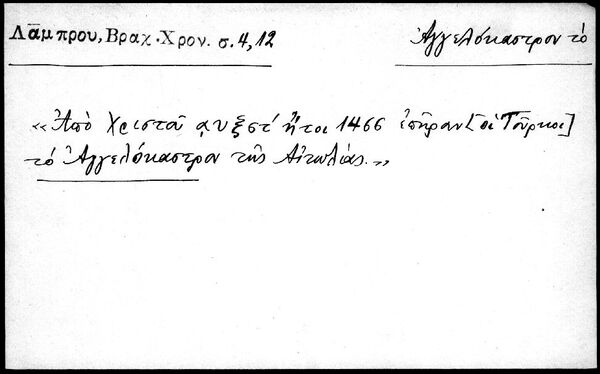 Λάμπρου, Βραχ. Χρον. σ. 4,12
Ἀγγελόκαστρον τὸ
«Ἀπὸ Χριστοῦ ͵αυξστ´ ἤτοι 1466 ἐπῆραν [οἱ Τοῦρκοι]
τὸ Ἀγγελόκαστρον τῆς Αἰτωλίας.»